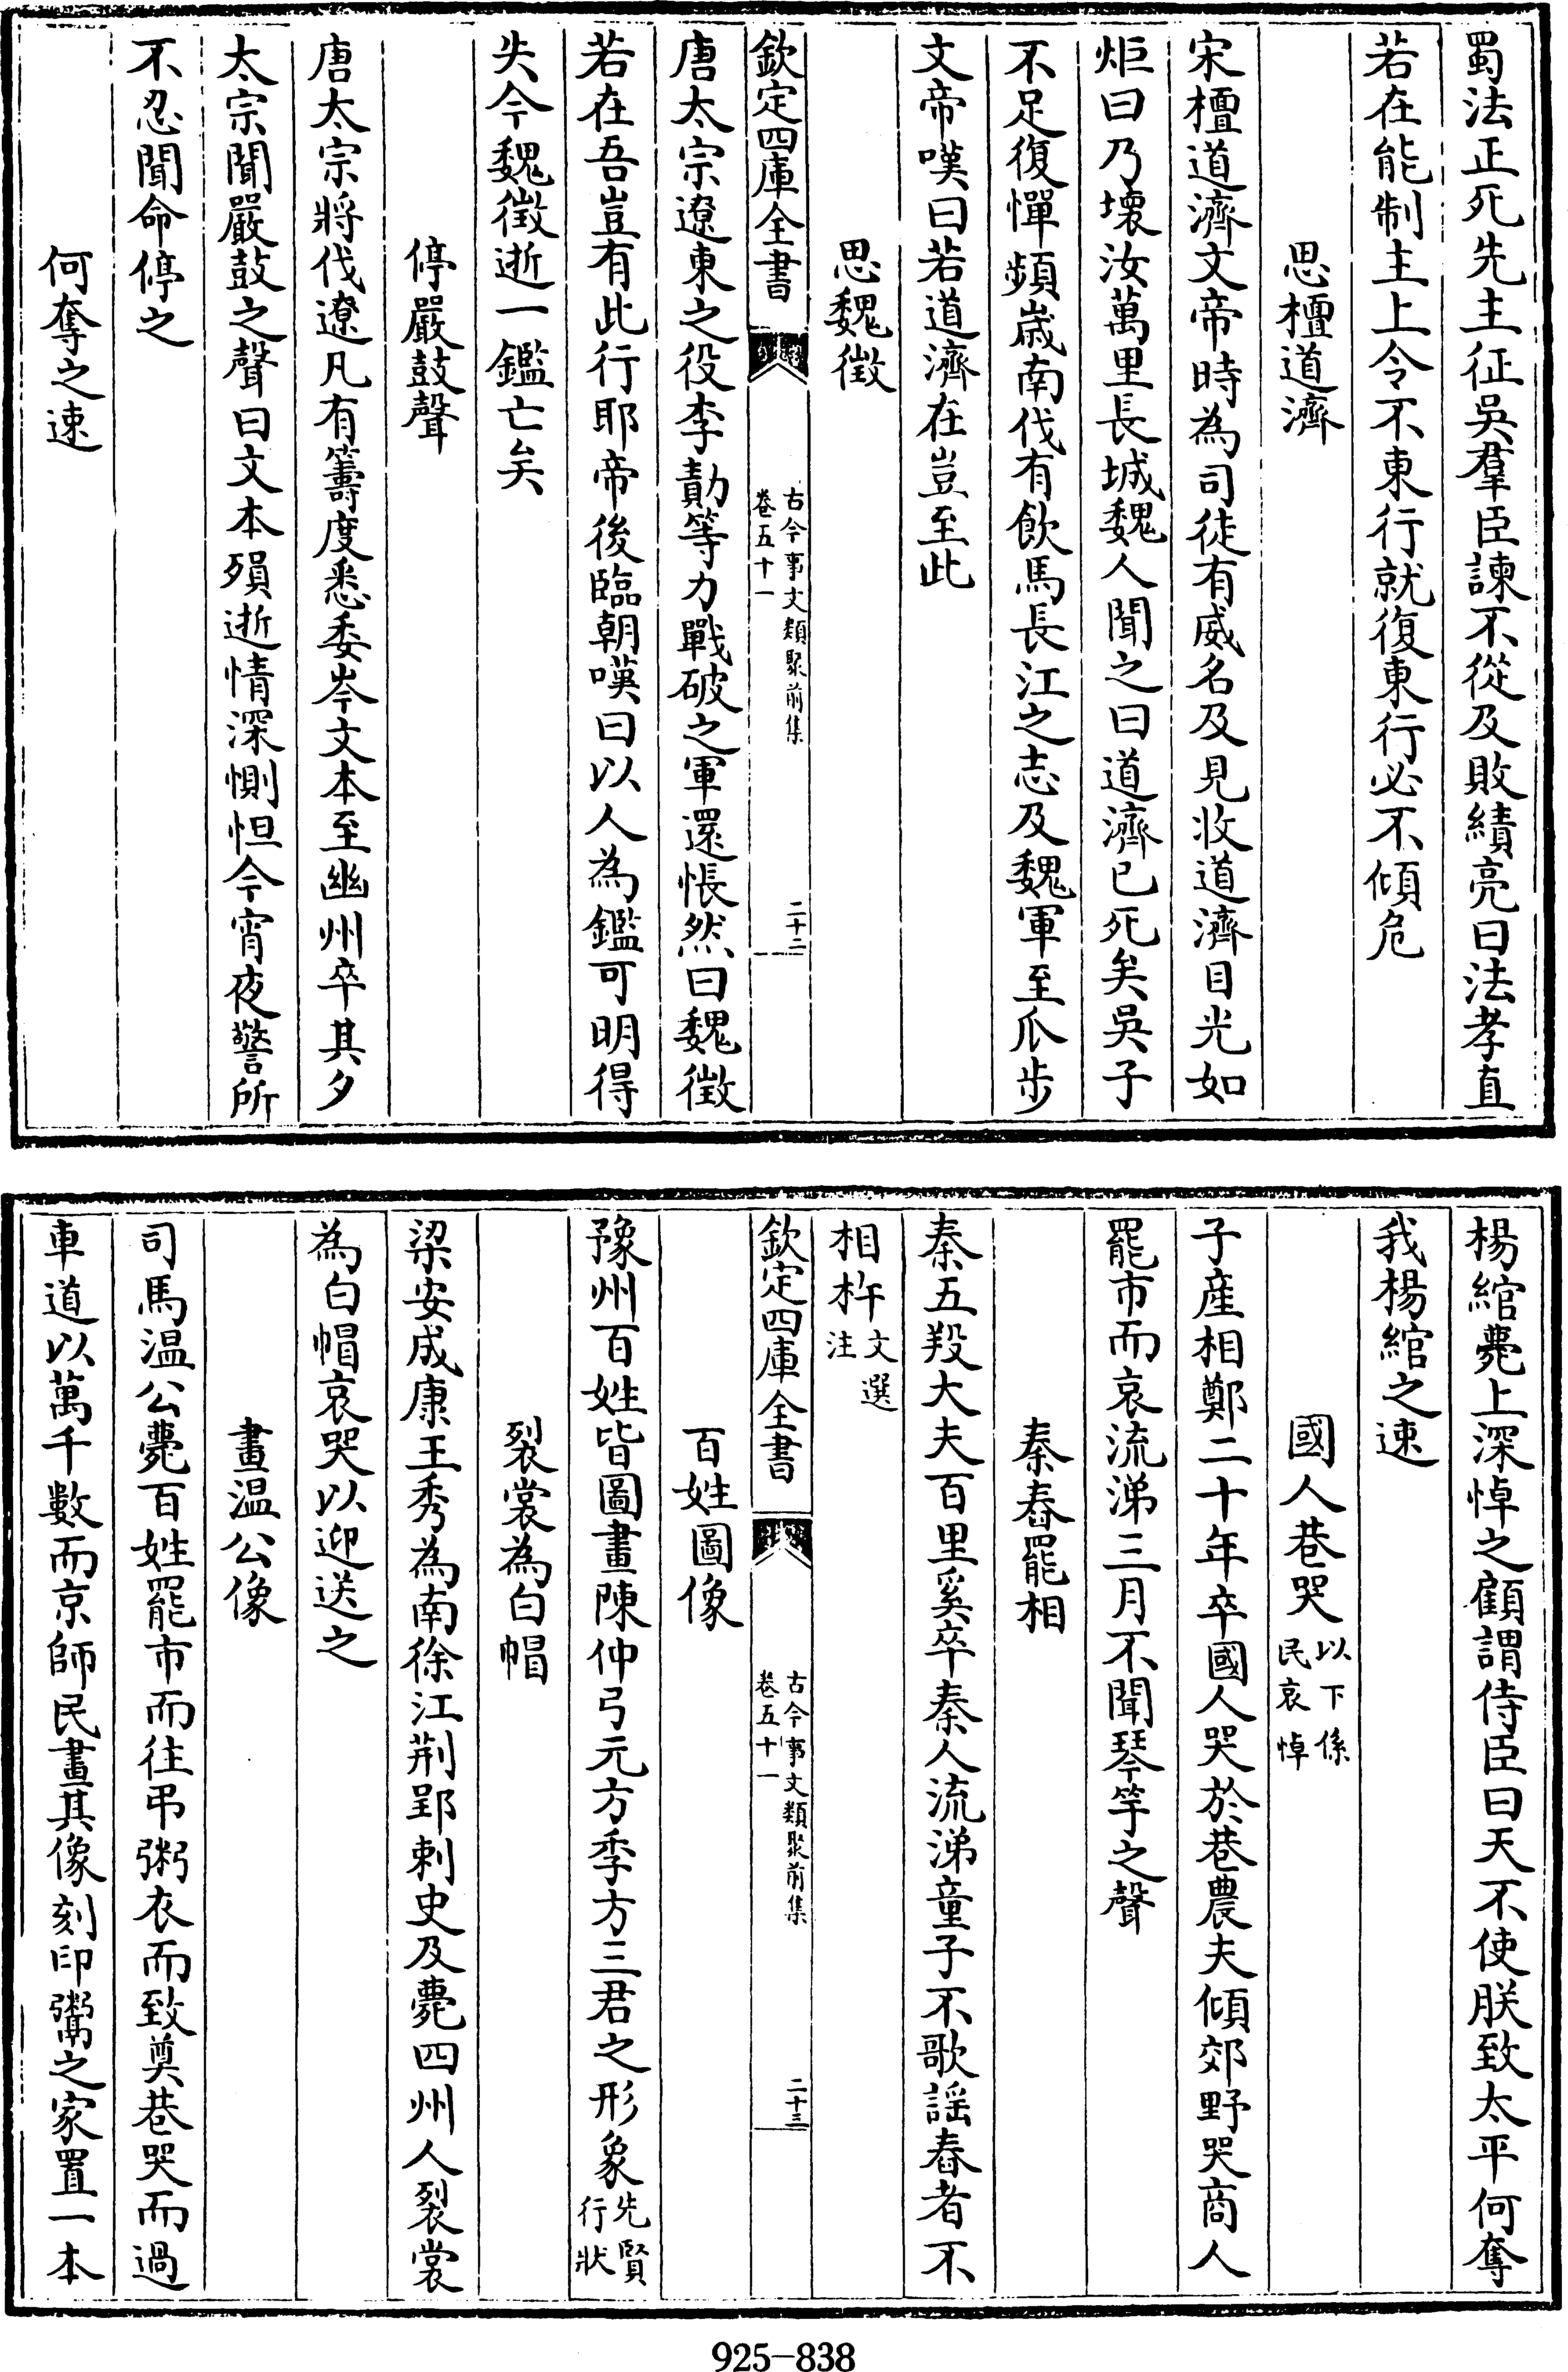 蜀法正死先主征吳羣臣諫不從及敗績亮曰法孝直
若在能制主上令不東行就復東行必不傾危
思檀道濟
宋檀道濟文帝時為司徒有威名及見收道濟目光如
炬曰乃壞汝萬里長城魏人聞之曰道濟已死矣吳子
不足復憚頻嵗南伐有飲馬長江之志及魏軍至瓜步
文帝嘆曰若道濟在豈至此
思魏徵
欽定四庫全書
古今事文類聚前集
卷五十一
二十二
唐太宗遼東之役李勣等力戰破之軍還悵然曰魏徵
若在吾豈有此行耶帝後臨朝嘆曰以人為鑑可明得
失今魏徵逝一鑑亡矣
停嚴鼓聲
唐太宗將伐遼凡有籌度悉委岑文本至幽州卒其夕
太宗聞嚴鼓之聲曰文本殞逝情深惻怛今宵夜警所
不忍聞命停之
何奪之速
楊綰薨上深悼之顧謂侍臣曰天不使朕致太平何奪
我楊綰之速
國人巷哭以下係民哀悼
子產相鄭二十年卒國人哭於巷農夫傾郊野哭商人
罷市而哀流涕三月不聞琴竽之聲
秦舂罷相
秦五羖大夫百里奚卒秦人流涕童子不歌謡舂者不
相杵文選注
欽定四庫全書
古今事文類聚前集
卷五十一
二十三
百姓圖像
豫州百姓皆圖畫陳仲弓元方季方三君之形象先賢行狀
裂裳為白帽
梁安成康王秀為南徐江荆郢刺史及薨四州人裂裳
為白帽哀哭以迎送之
畫温公像
司馬温公薨百姓罷市而往弔粥衣而致奠巷哭而過
車道以萬千數而京師民畫其像刻印鬻之家置一本
925-838